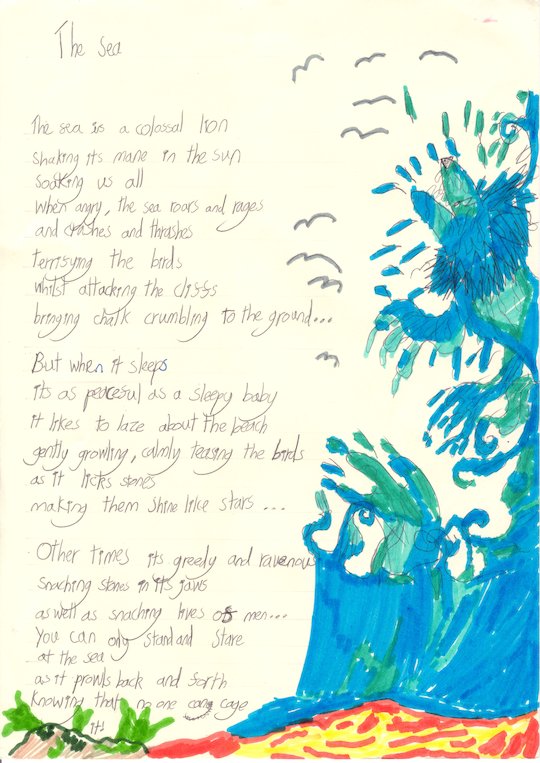 The sea
The sea is a colossal lion
shaking its mane in the sun
soaking us all
when angry, the sea roars and rages
and crashes and thrashes
terrifying the birds
whilst attacking the cliffs
bringing chalk crumbling to the ground...
But when it sleeps
its as peaceful as a sleepy baby
it likes to laze about the beach
gently growling, calmly teasing the birds
as it licks stones
making them shine like stars ...
Other times its greedy and ravenous
snaching stones in its jaws
as well as snaching lives of men...
You can only stand and stare
at the sea
as it prowls back and forth
knowing that no one cage
it!